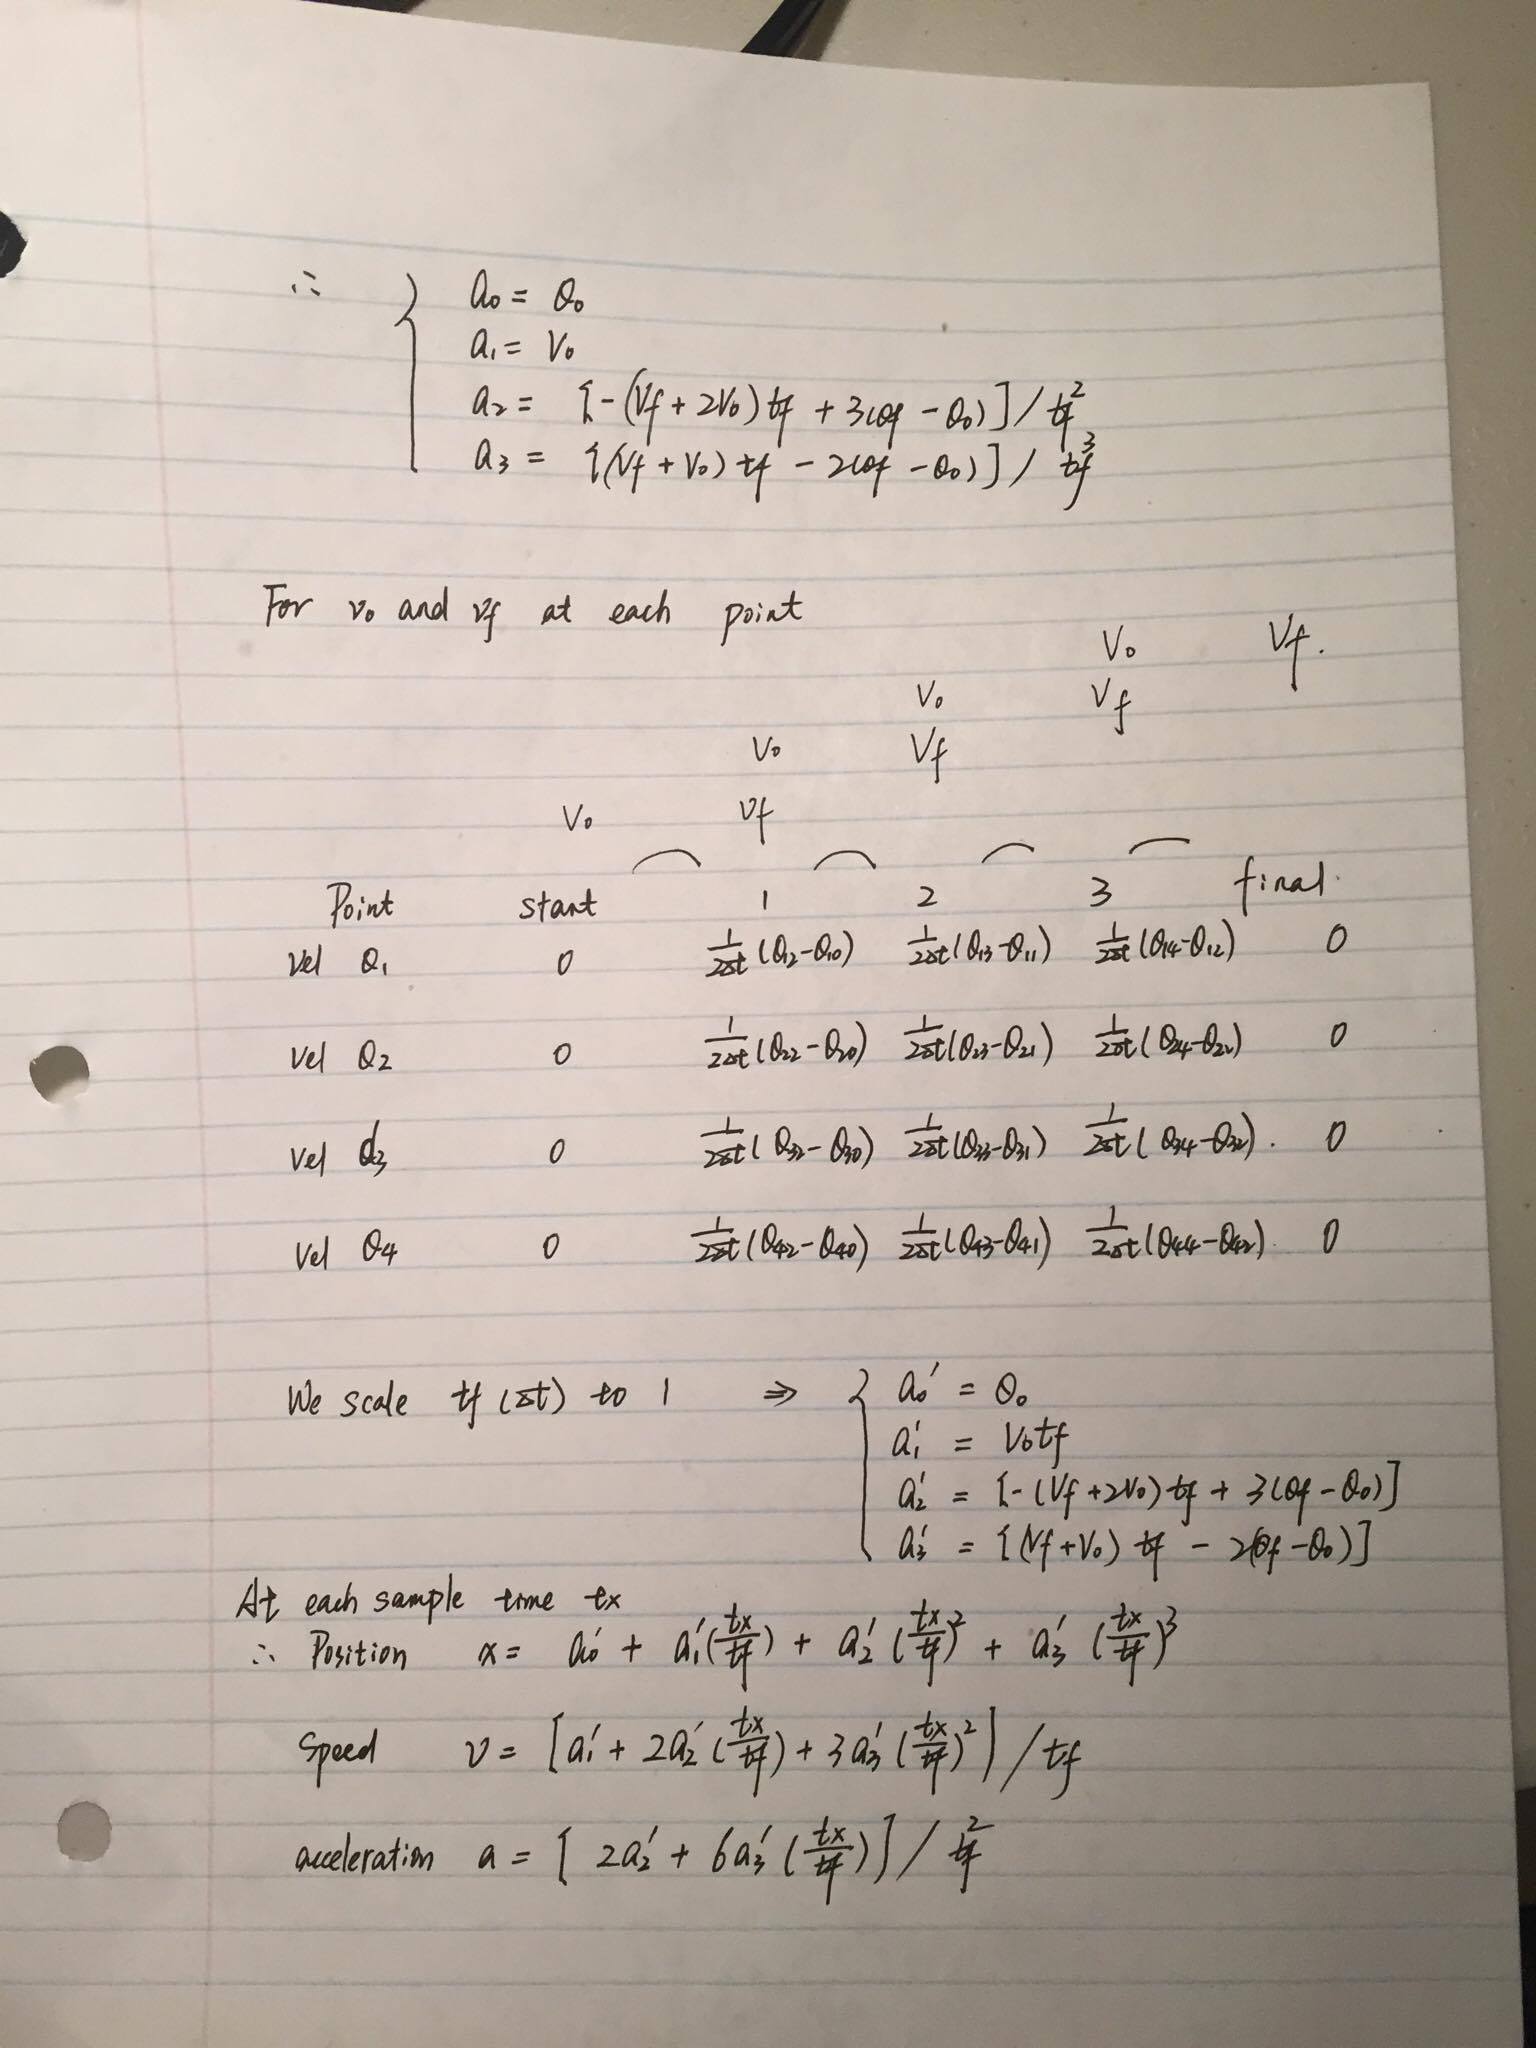 ∴ { a₀ = θ₀
a₁ = V₀
a₂ = [-(Vf + 2V₀)tf + 3(θf - θ₀)] / tf²
a₃ = [(Vf + V₀)tf - 2(θf - θ₀)] / tf³
For v₀ and vf at each point
V₀ Vf.
V₀ Vf
V₀ Vf
V₀ Vf
Point start 1 2 3 final.
Vel θ₁ 0 1/2Δt (θ₁₂-θ₁₀) 1/2Δt (θ₁₃-θ₁₁) 1/2Δt (θ₁₄-θ₁₂) 0
Vel θ₂ 0 1/2Δt (θ₂₂-θ₂₀) 1/2Δt (θ₂₃-θ₂₁) 1/2Δt (θ₂₄-θ₂₂) 0
Vel d₃ 0 1/2Δt (θ₃₂-θ₃₀) 1/2Δt (θ₃₃-θ₃₁) 1/2Δt (θ₃₄-θ₃₂). 0
Vel θ₄ 0 1/2Δt (θ₄₂-θ₄₀) 1/2Δt (θ₄₃-θ₄₁) 1/2Δt (θ₄₄-θ₄₂). 0
We scale tf (Δt) to 1 ⇒ { a₀' = θ₀
a₁' = V₀tf
a₂' = [-(Vf + 2V₀)tf + 3(θf - θ₀)]
a₃' = [(Vf + V₀)tf - 2(θf - θ₀)]
At each sample time tx
∴ Position x = a₀' + a₁'(tx/tf) + a₂'(tx/tf)² + a₃'(tx/tf)³
Speed v = [a₁' + 2a₂'(tx/tf) + 3a₃'(tx/tf)²] / tf
acceleration a = [2a₂' + 6a₃'(tx/tf)] / tf²